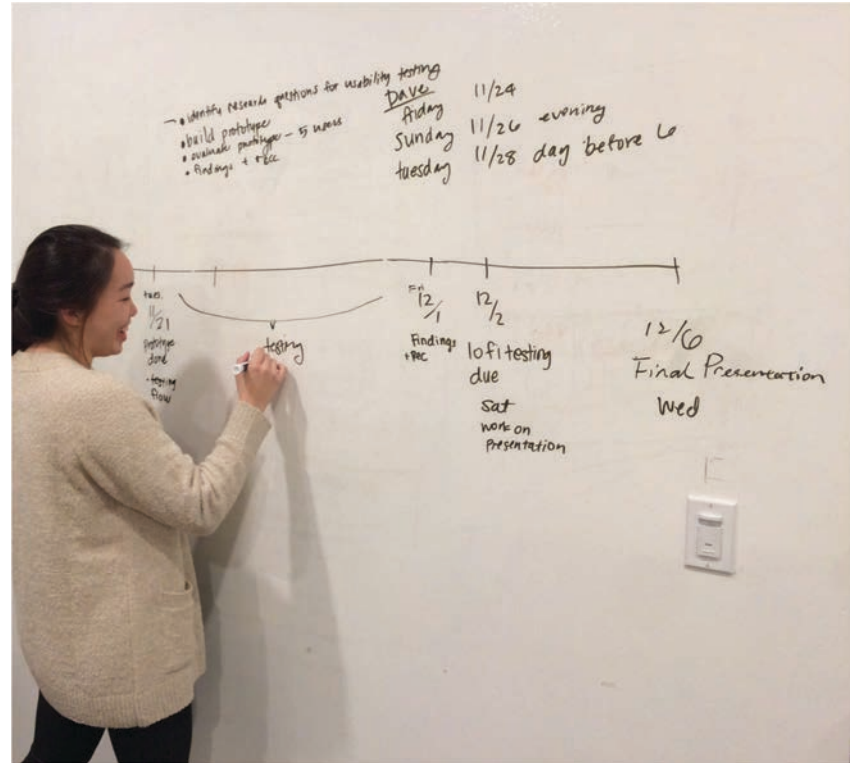 • identify research questions for usability testing
• build prototype
• evaluate prototype – 5 users
• findings + rec
Dave
friday 11/24
sunday 11/26 evening
tuesday 11/28 day before 6
tues.
11/21
prototype
done
+ testing
flow
testing
Fri
12/1
Findings
+ Rec
12/2
lofi testing
due
sat
work on
presentation
12/6
Final Presentation
Wed